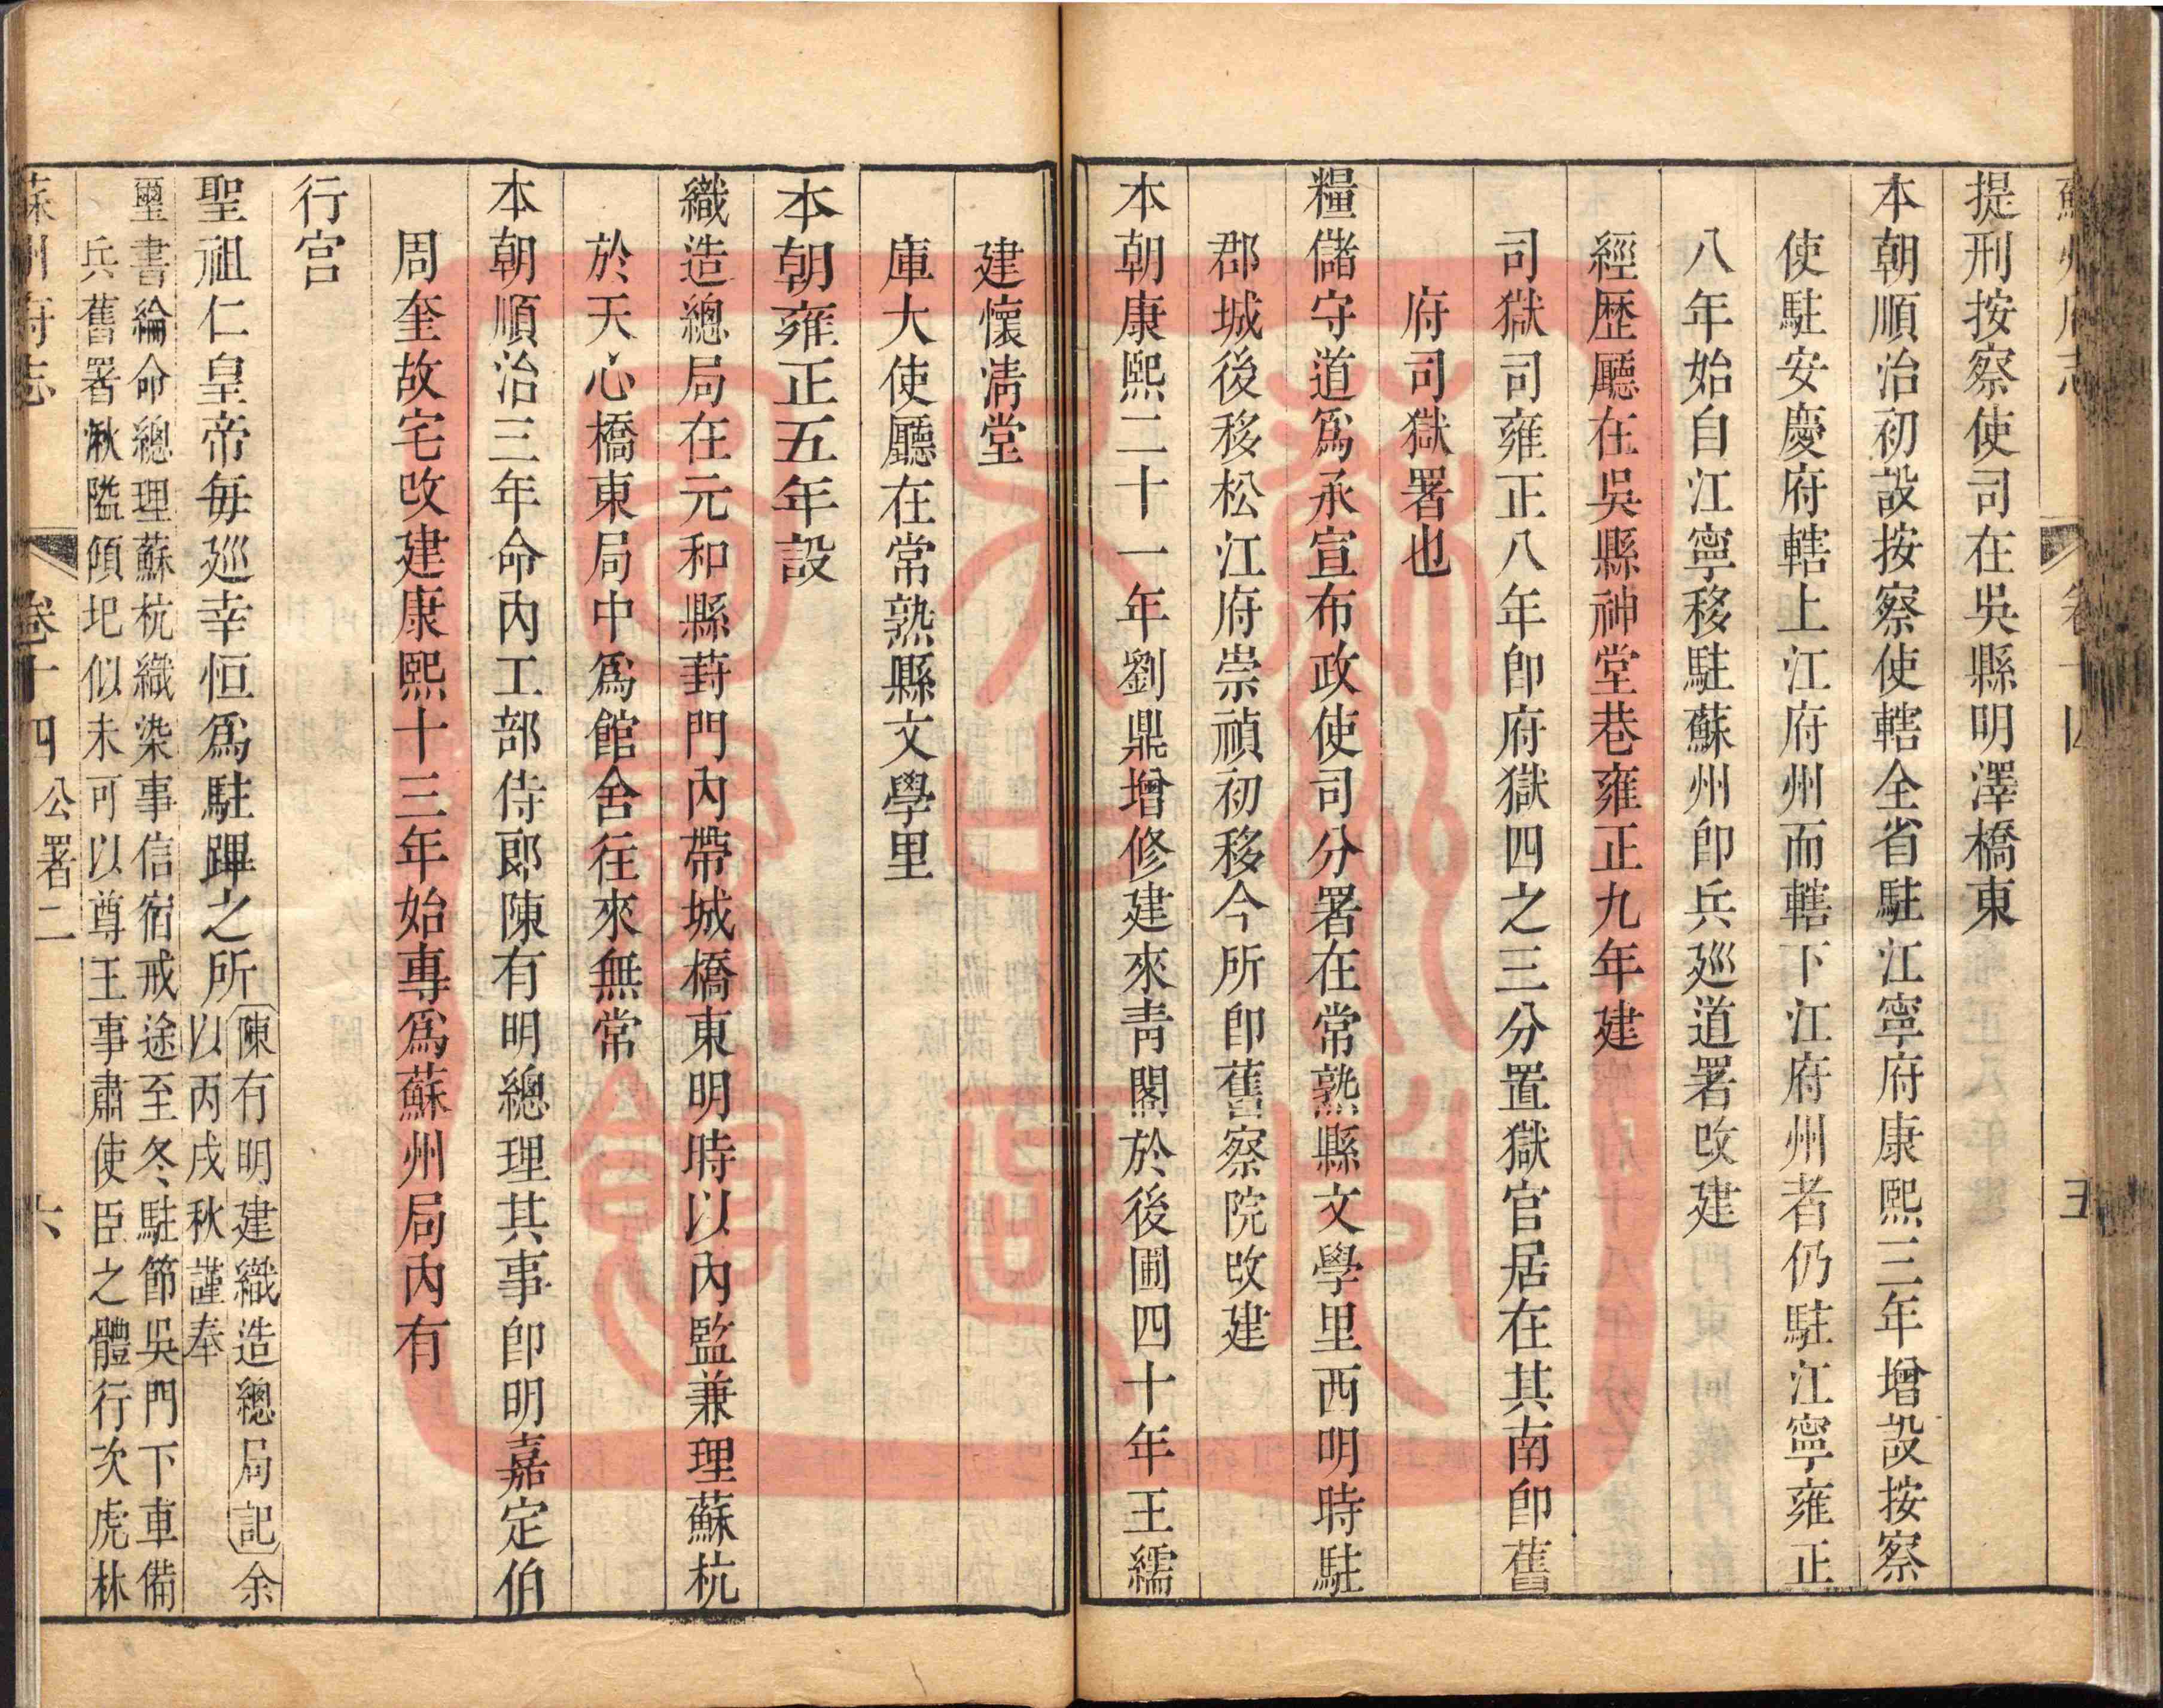 提刑按察使司在吳縣明澤橋東
本朝順治初設按察使轄全省駐江寧府康熙三年增設按察
使駐安慶府轄上江府州而轄下江府州者仍駐江寧雍正
八年始自江寧移駐蘇州卽兵廵道署改建
經歷廳在吳縣神堂巷雍正九年建
司獄司雍正八年卽府獄四之三分置獄官居在其南卽舊
府司獄署也
糧儲守道爲承宣布政使司分署在常熟縣文學里西明時駐
郡城後移松江府崇禎初移今所卽舊察院改建
本朝康熙二十一年劉鼎增修建來靑閣於後圃四十年王繻
建懷淸堂
庫大使廳在常熟縣文學里
本朝雍正五年設
織造總局在元和縣葑門內帶城橋東明時以內監兼理蘇杭
於天心橋東局中爲館舍往來無常
本朝順治三年命內工部侍郎陳有明總理其事卽明嘉定伯
周奎故宅改建康熙十三年始專爲蘇州局內有
行宮
聖祖仁皇帝每廵幸恒爲駐蹕之所
陳有明建織造總局記余
以丙戌秋謹奉
璽書綸命總理蘇杭織染事信宿戒途至冬駐節吳門下車備
兵舊署湫隘傾圯似未可以尊王事肅使臣之體行次虎林
蘇州府志 卷十四 公署二 六